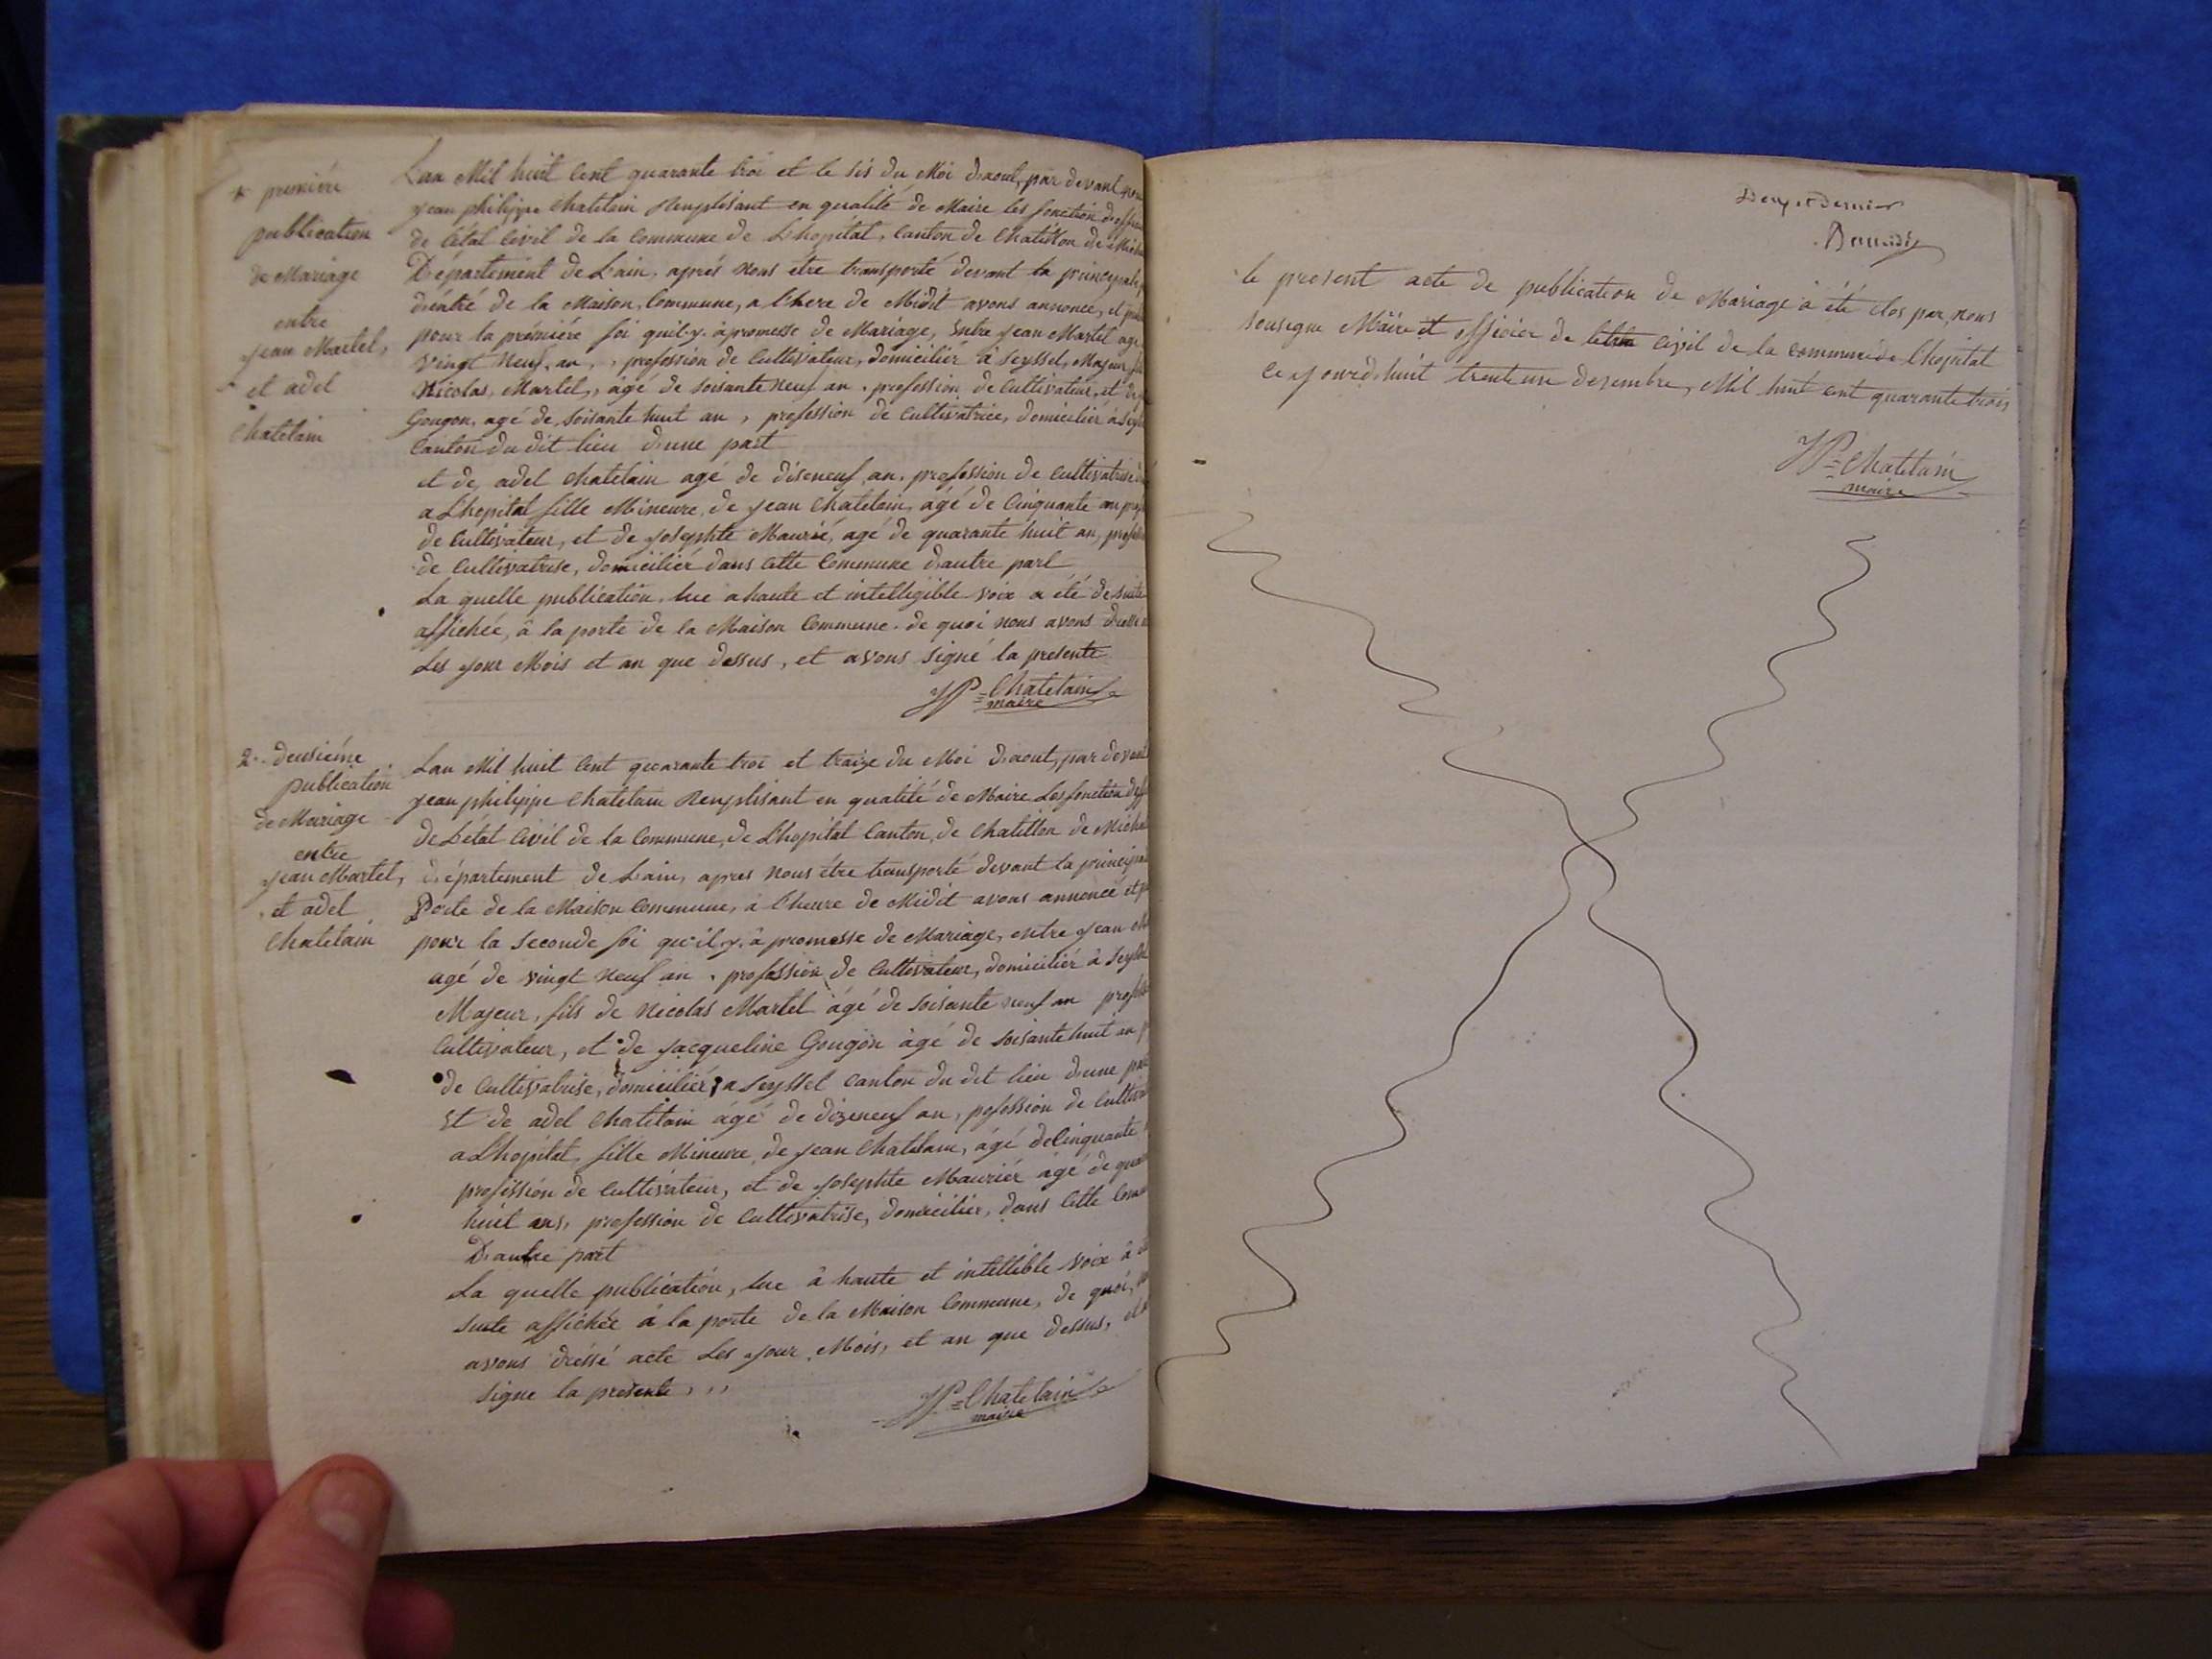 * première
publication
de Mariage
entre
jean Martel,
et adel
Chatelain
Lan Mil huit Cent quarante troi et le sis du Moi daout, par devant
jean philippe Chatelain Remplisant en qualité de Maire les fonction
de letat Civil de la Commune de Lhopital, Canton de Chatillon de
Département de Lain, aprés nous étre transporté devant la principale
de la Maison Commune, a lhere de Midit avons annonce, et
pour la prémiére foi quil y à promesse de Mariage, Entre jean Martel
vingt neuf an, profession de Cultivateur, domicilié à Seyssel, Majeur
Nicolas Martel, agé de soisante neuf an, profession de Cultivateur, et
Gougon, agé de soisante huit an, profession de Cultivatrice, domicilier à
Canton du dit lieu dune part
et de adel Chatelain agé de diseneuf an, profession de Cultivatrise
a Lhopital fille Mineure de jean Chatelain, âgé de Cinquante an
de Cultivateur, et de josephte Maurié, agé de quarante huit an,
de Cultivatrise, domiciliér dans Cette Commune dautre part
La quelle publication, lue a haute et intelligible voix a été de suite
affichée, à la porte de la Maison Commune. de quoi nous avons
Les jour Mois et an que dessus, et avons signé la presente
JP=Chatelain
maire
2. deusiéme
publication
de Mariage
entre
jean Martel,
et adel
Chatelain
Lan Mil huit Cent quarante troi et traize du Moi daout, par devant
jean philippe Chatelain Remplisant en qualité de Maire Les fonction
de Létat Civil de la Commune, de Lhopital Canton, de Chatillon de
département de Lain, apres nous étre transporté devant la
Porte de la Maison Commune, à lheure de Midit avons annoncé et
pour la seconde foi qu'il y à promesse de Mariage, entre jean
agé de vingt neuf an, profession de Cultivateur, domiciliér à
Majeur, fils de Nicolas Martel âgé de soisante neuf an
Cultivateur, et de jacqueline Gougon âgé de soisante huit an
de Cultivatrise, domiciliér a Seyssel Canton du dit lieu dune
Et de adel Chatelain âgé de dizeneuf an, pofession de
a Lhopital, fille Mineure, de jean Chatelain, âgé de Cinquante
profission de Cultivateur, et de josephte Mauriér âgé de
huit ans, profession de Cultivatrise, domicilier, dans Cette
Dautre part
La quelle publication, lue à haute et intellible voix à
suite affichée à la porte de la Maison Commune, de quoi,
avons dréssé acte Les jour, Mois, et an que dessus,
signe la presente
JP=Chatelain
maire
Deux et dernier
le present acte de publication de Mariage à été clos par nous
sousegne Maire et officier de civil de la commune de lhopital
ce jourdhuit trente un desembre, Mil huit cent quarante trois
JP=Chatelain
maire